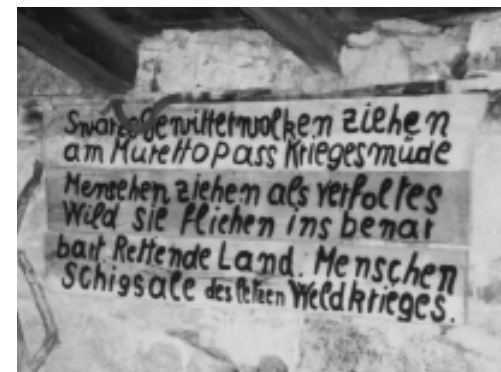 Swarze Gewitterwolken ziehen
am Murettopass Kriegesmüde
Menschen ziehen als verfoltes
Wild sie fliehen ins benar
bart. Rettende Land. Menschen
Schigsale des letzen Weldkrieges.